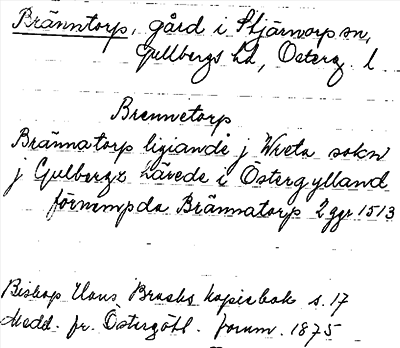 Bränntorp, gård i Stjärnorp sn,
Gullbergs hd, Österg. l
Brennetorp
Brännatorp ligiande j Wreta sokn
j Gulbergx härede i Östergylland
förnempda Brännatorp 2 ggr 1513
Biskop Hans Brasks kopiebok s. 17
Medd. fr. Östergötl. fornm. 1875